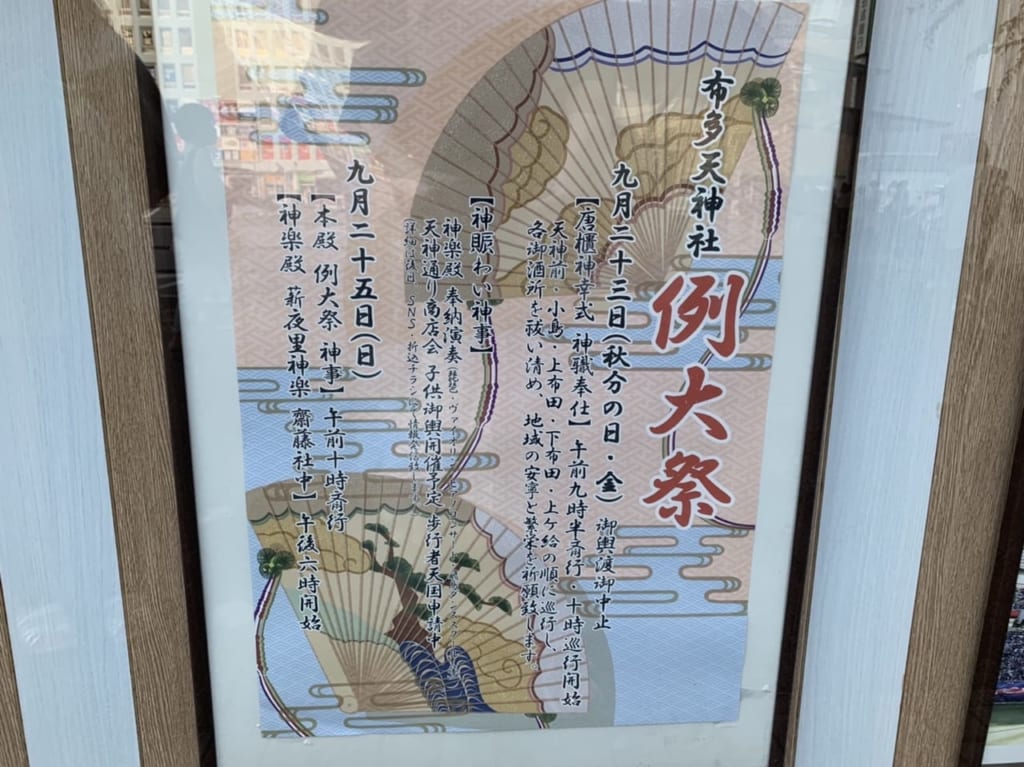 布多天神社 例大祭
九月二十三日(秋分の日・金) 御輿渡御中止
【唐櫃神幸式 神職奉仕】 午前九時半斎行・十時巡行開始
天神前・小島・上布田・下布田・上ケ給の順に巡行し、
各御酒所を祓い清め、地域の安寧と繁栄を祈願致します。
【神賑わい神事】
神楽殿 奉納演奏
天神通り商店会 子供御輿開催予定 歩行者天国申請中
(詳細は後日、SNS・折込チラシにて情報発信致します)
九月二十五日(日)
【本殿 例大祭 神事】 午前十時斎行
【神楽殿 薪夜里神楽 齋藤社中】 午後六時開始